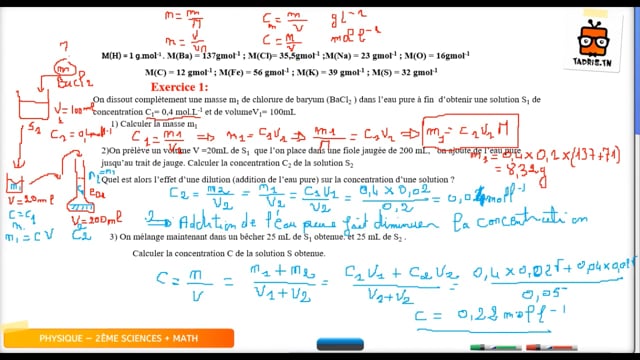 n = m/M
C_m = m/V g l⁻¹
n = V/V_m
C = n/V mol l⁻¹
M(H) = 1 g.mol⁻¹ . M(Ba) = 137gmol⁻¹ ; M(Cl)= 35,5gmol⁻¹ ;M(Na) = 23 gmol⁻¹ ; M(O) = 16gmol⁻¹
TADRIS.TN
M(C) = 12 gmol⁻¹ ; M(Fe) = 56 gmol⁻¹ ; M(K) = 39 gmol⁻¹ ; M(S) = 32 gmol⁻¹
Exercice 1:
BaCl2
On dissout complètement une masse m₁ de chlorure de baryum (BaCl₂ ) dans l'eau pure à fin d'obtenir une solution S₁ de
concentration C₁= 0,4 mol.L⁻¹ et de volumeV₁= 100mL
V = 100ml
1) Calculer la masse m₁
C₁ = n₁/V₁ ⇒ n₁ = C₁V₁ ⇒ m₁/M = C₁V₁ ⇒ m₁ = C₁V₁M
2)On prélève un volume V =20mL de S₁ que l'on place dans une fiole jaugée de 200 mL, on ajoute de l'eau pure
jusqu'au trait de jauge. Calculer la concentration C₂ de la solution S₂
m₁ = 0,4 x 0,1 x (137+71)
= 8,32 g
Quel est alors l'effet d'une dilution (addition de l'eau pure) sur la concentration d'une solution ?
V = 20ml
C = C₁
n₁ = CV
V = 200ml
C₂
C₂ = n₂/V₂ = n₁/V₂ = C₁V₁/V₂ = 0,4 x 0,02/0,2 = 0,04 mol l⁻¹
⇒ Addition de l'eau pure fait diminuer la concentration
3) On mélange maintenant dans un bécher 25 mL de S₁ obtenue. et 25 mL de S₂ .
Calculer la concentration C de la solution S obtenue.
C = n/V = n₁ + n₂/V₁ + V₂ = C₁V₁ + C₂V₂/V₁+V₂ = 0,4 x 0,025 + 0,04 x 0,025/0,05
C = 0,22 mol l⁻¹
PHYSIQUE – 2ÈME SCIENCES + MATH